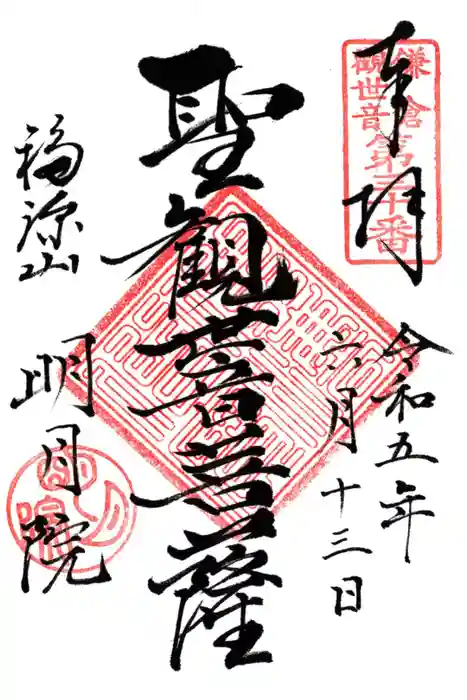 奉拝
鎌倉
観世音
第三十番
令和五年
六月十三日
聖観世音菩薩
福源山
明月院